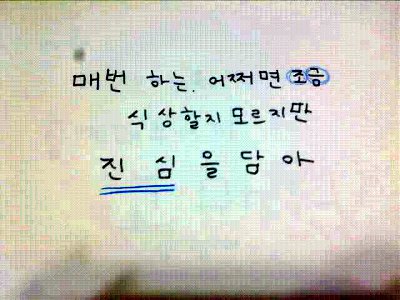 매번 하는, 어쩌면 조금
식상할지 모르지만
진심을 담아